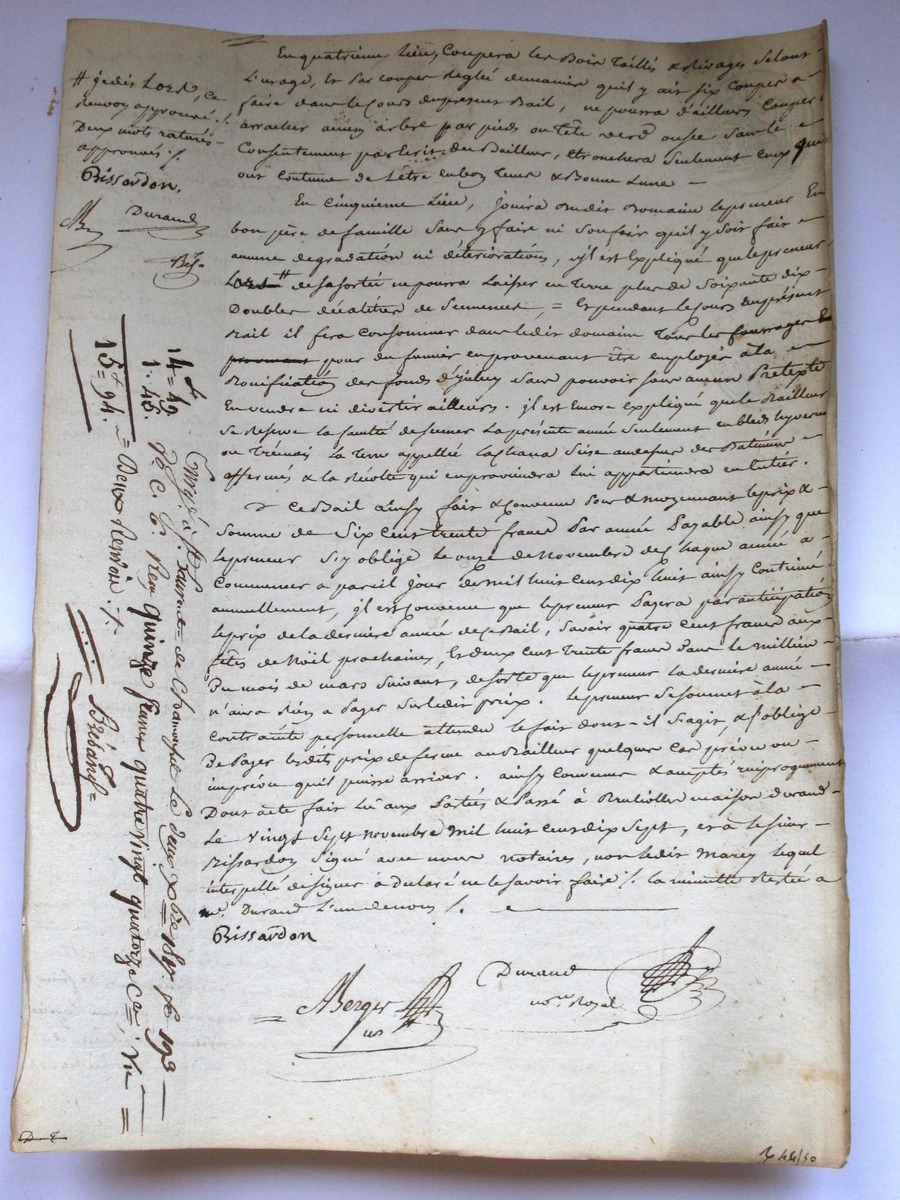 # je dis Lors, ce
renvoy approuvé ./.
Deux mots raturés
approuvés ./.
Bissardon.
Durand
En quatrieme Lieu, Coupera les Bois Taillés & Rivages Selont
L'usage, & Par coupes Reglé demaniere quil y ait six Coupes a
faire dans le Cours du present Bail, ne pourra d'ailleurs Couper
arracher aucun arbre par pieds ou tête verd ou sec Sans le
Consentement par Ecrit du Bailleur, Etronchera Seulement Ceux qui
ont Coutume de L'être en bon Tems & Bonne Lune —
En Cinquieme Lieu, jouira dudit Domaine le preneur En
bon pere de famille Sans y faire ni Soufrir quil y Soit fait
aucune degradation ni déteriorations, il est Expliqué que le preneur
# de sa sortie ne pourra Laisser en Terre plus de Soixante dix
Doubles décalitres de Semences, = Et pendant le Cours du présent
Bail il fera Consommer dans ledit domaine Tous les fourrages
pour du fumier en provenant être employés a la
Bonification des fonds d'iceluy Sans pouvoir Sous aucun Pretexte
En vendre ni divertir ailleurs. il est Encore Expliqué que le Bailleur
Se Reserve la faculté de Semer la présente année Seulement en bleds hyverne
ou Trémois La Terre appellée Sise au dessus des Batimens
affermés & la Récolte qui en proviendra lui appartiendra en Entier.
Ce Bail ainsy fait & Convenu Pour & moyennant le prix &
Somme de Six Cent trente francs Par année Payable ainsy que
le preneur S'y oblige Le onze de Novembre de Chaque année a
Commencer a pareil jour de mil huit Cent dix huit ainsy Continué
annuellement, il est Convenu que le preneur Payera par anticipation
le prix de la derniere année de Ce Bail, Savoir quatre Cent francs aux
fêtes de Noël prochaines, Et deux cent Trente francs dans le millieu
Du mois de mars Suivant, de sorte que le preneur La derniere année
n'aura Rien a Payer Sur ledit prix. Le preneur Se Soumet à la
Contrainte personnelle attendu le fait dont il S'agit, & S'oblige
De Payer lesdits prix de ferme au Bailleur quelque Cas prévu ou
imprévu qu'il puisse arriver. ainsy Convenu & acceptés reciproquement
Dont acte fait Lu aux Parties & Passé à maison Durand
Le Vingt Sept novembre Mil huit Cent dix Sept, & a le Sieur
Bissardon Signé avec nous notaires, non ledit Marey lequel
interpellé de signer à Déclaré ne le Savoir faire ./. La minutte Restée a
me. Durand L'un de nous ./.
Bissardon
Berger
Durand
nore. Royal
14 = 49
1 . 45
15 = 94.
= Deux Renvois ./.
Quinze francs quatre vingt quatorze Cmes
44/50